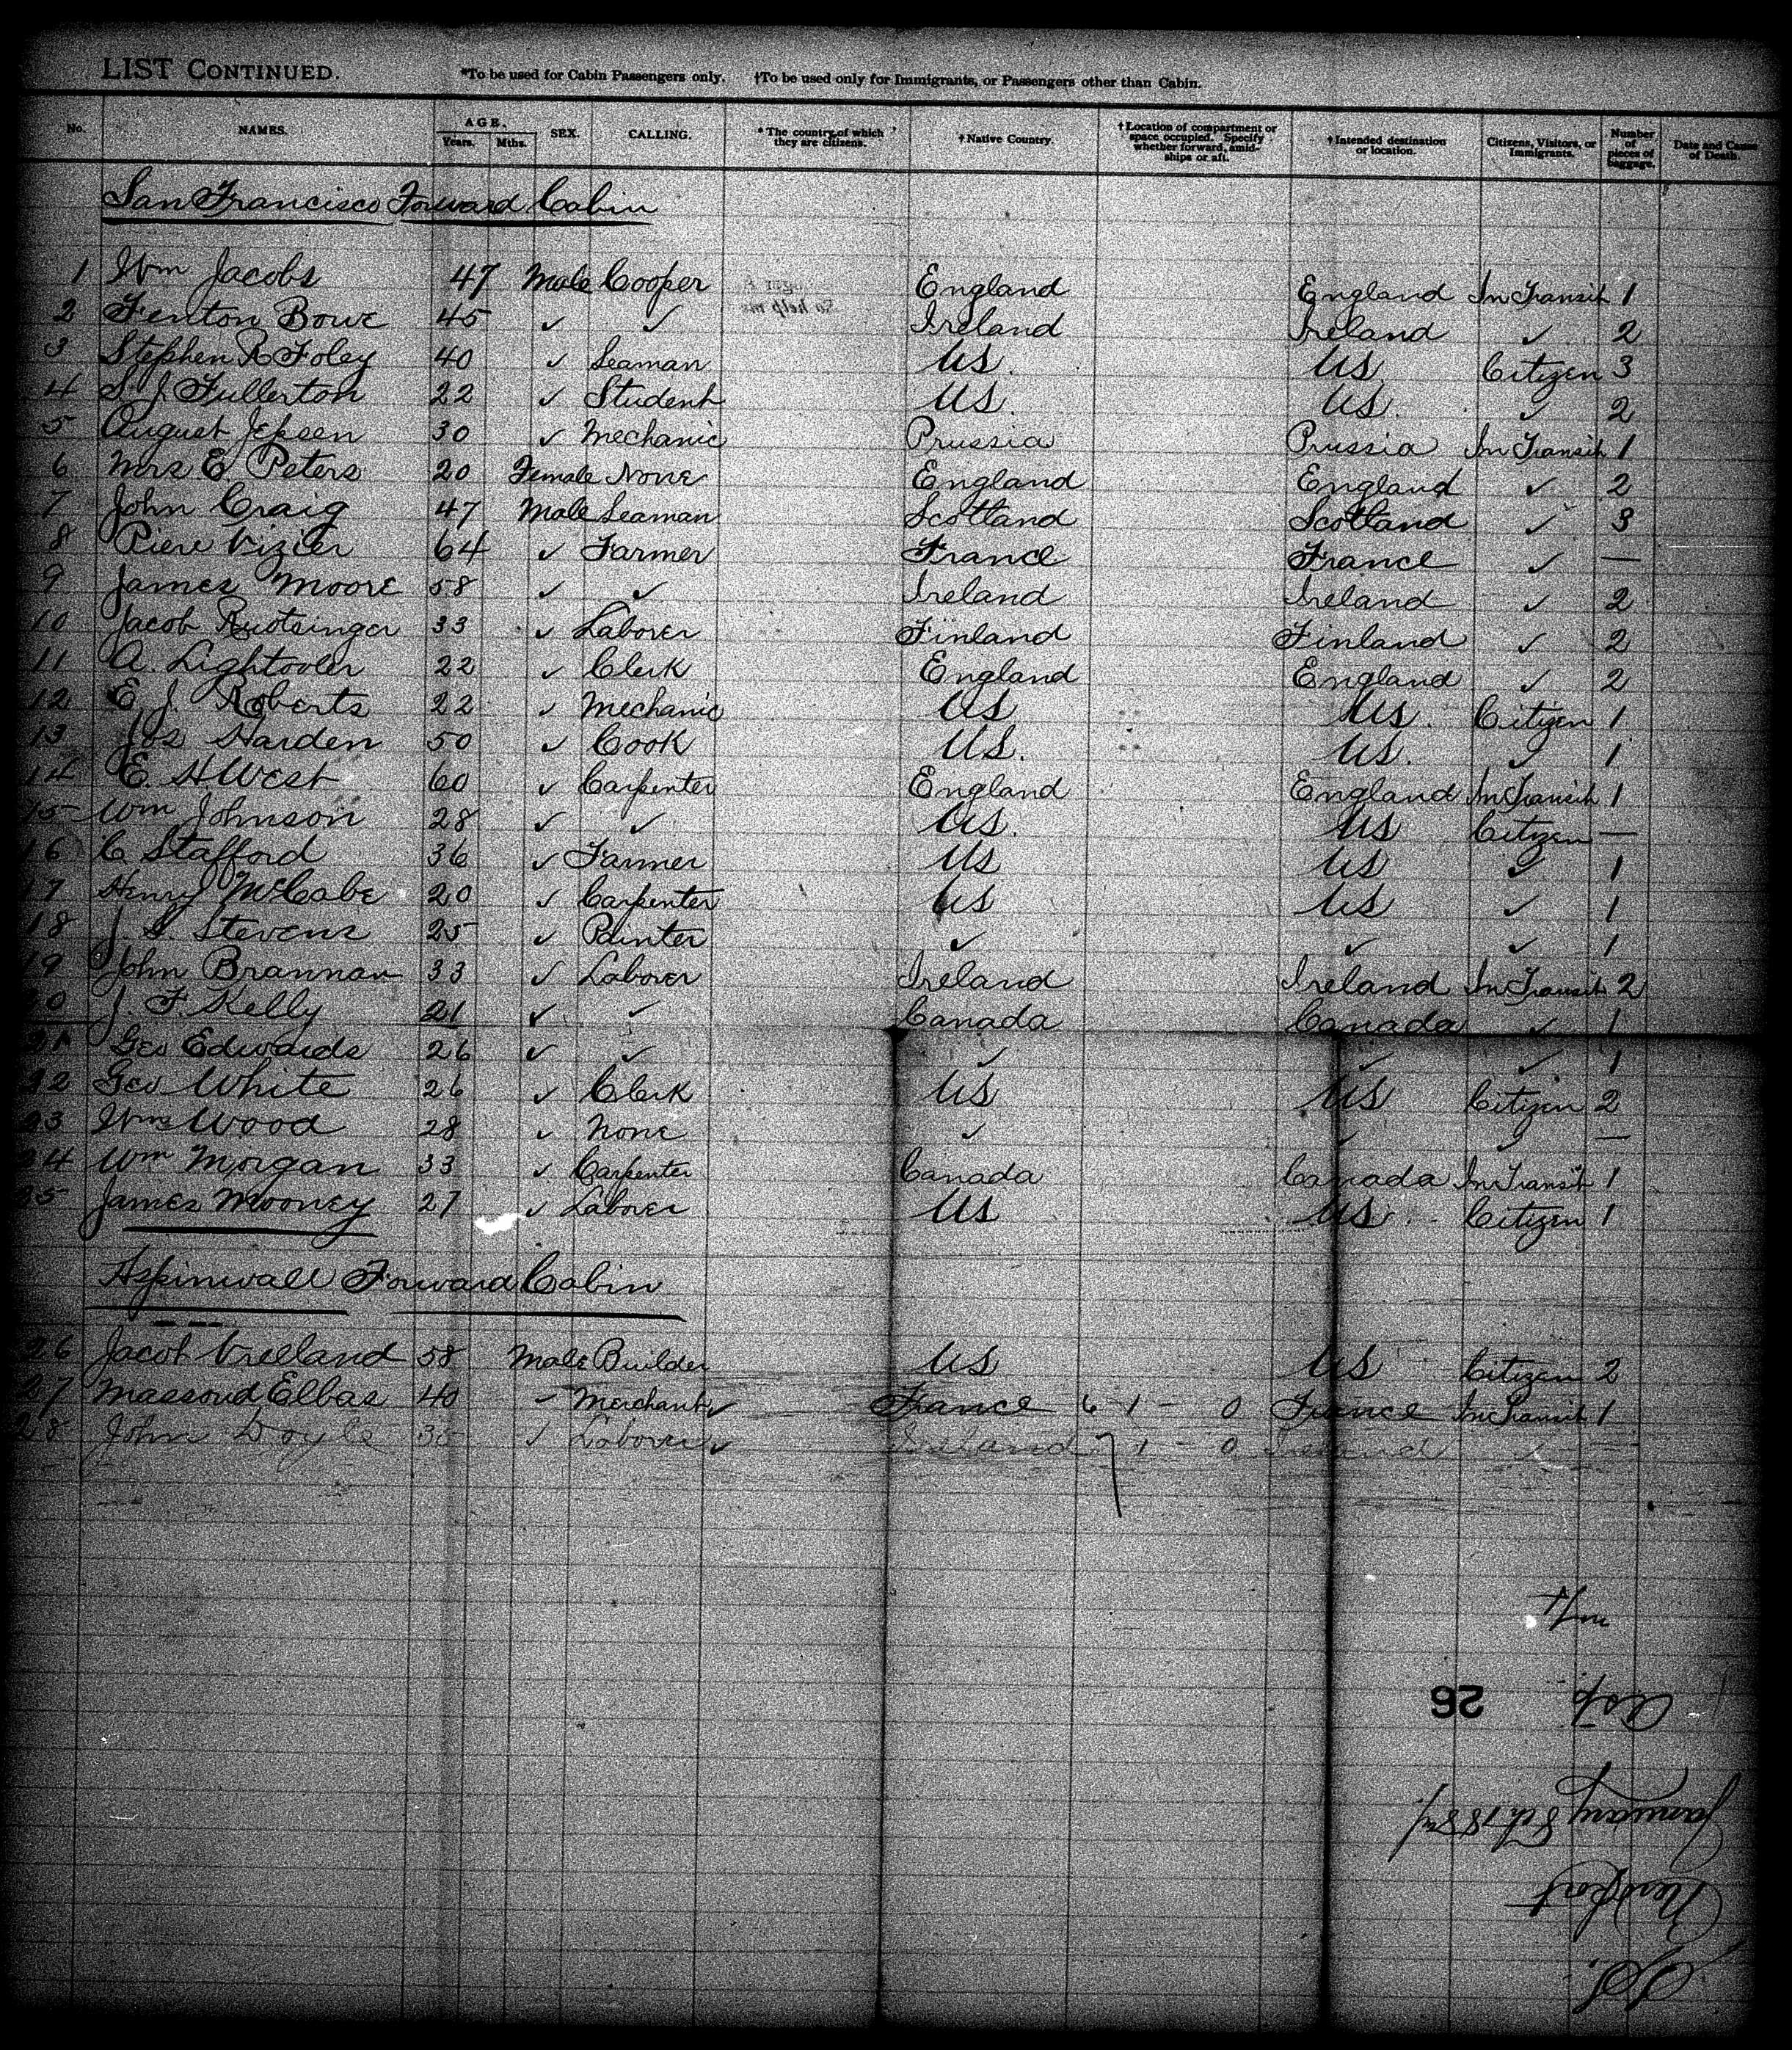 LIST CONTINUED. *To be used for Cabin Passengers only. †To be used only for Immigrants, or Passengers other than Cabin.
No. NAMES. AGE. Years. Mths. SEX. CALLING. *The country of which they are citizens. †Native Country. †Location of compartment or space occupied. Specify whether forward, amidships or aft. †Intended destination or location. Citizens, Visitors, or Immigrants. Number of pieces of baggage. Date and Cause of Death.
San Francisco Forward Cabin
1 Wm Jacobs 47 Male Cooper England England In Transit 1
2 Fenton Bowe 45 ✓ ✓ Ireland Ireland ✓ 2
3 Stephen R Foley 40 ✓ Seaman US. US Citizen 3
4 S J Fullerton 22 ✓ Student US. US. ✓ 2
5 August Jepsen 30 ✓ Mechanic Prussia Prussia In Transit 1
6 Mrs E Peters 20 Female None England England ✓ 2
7 John Craig 47 Male Seaman Scotland Scotland ✓ 3
8 Piere Vizier 64 ✓ Farmer France France ✓ —
9 James Moore 58 ✓ ✓ Ireland Ireland ✓ 2
10 Jacob 33 ✓ Laborer Finland Finland ✓ 2
11 A. 22 ✓ Clerk England England ✓ 2
12 E. J. Roberts 22 ✓ Mechanic US US. Citizen 1
13 Jos Harden 50 ✓ Cook US. US. ✓ 1
14 E. H West 60 ✓ Carpenter England England In Transit 1
15 Wm Johnson 28 ✓ ✓ US. US Citizen —
16 C Stafford 36 ✓ Farmer US US ✓ 1
17 Henry McCabe 20 ✓ Carpenter US US ✓ 1
18 J. S Stevens 25 ✓ Painter ✓ ✓ ✓ 1
19 John Brannan 33 ✓ Laborer Ireland Ireland In Transit 2
20 J. F Kelly 21 ✓ ✓ Canada Canada ✓ 1
21 Geo Edwards 26 ✓ ✓ ✓ ✓ ✓ 1
22 Geo White 26 ✓ Clerk US US Citizen 2
23 Wm Wood 28 ✓ None ✓ ✓ ✓ —
24 Wm Morgan 33 ✓ Carpenter Canada Canada In Transit 1
25 James Mooney 27 ✓ Laborer US US. Citizen 1
Aspinwall Forward Cabin
26 Jacob Vreeland 58 Male Builder US US Citizen 2
27 Massoud Elbas 40 ✓ Merchant ✓ France 6 - 1 - 0 France In Transit 1
28 John Doyle 35 ✓ Laborer ✓ Ireland 7 1 - 0 Ireland ✓ —
26 Asp.
January 8th 1884
Newport
SS.